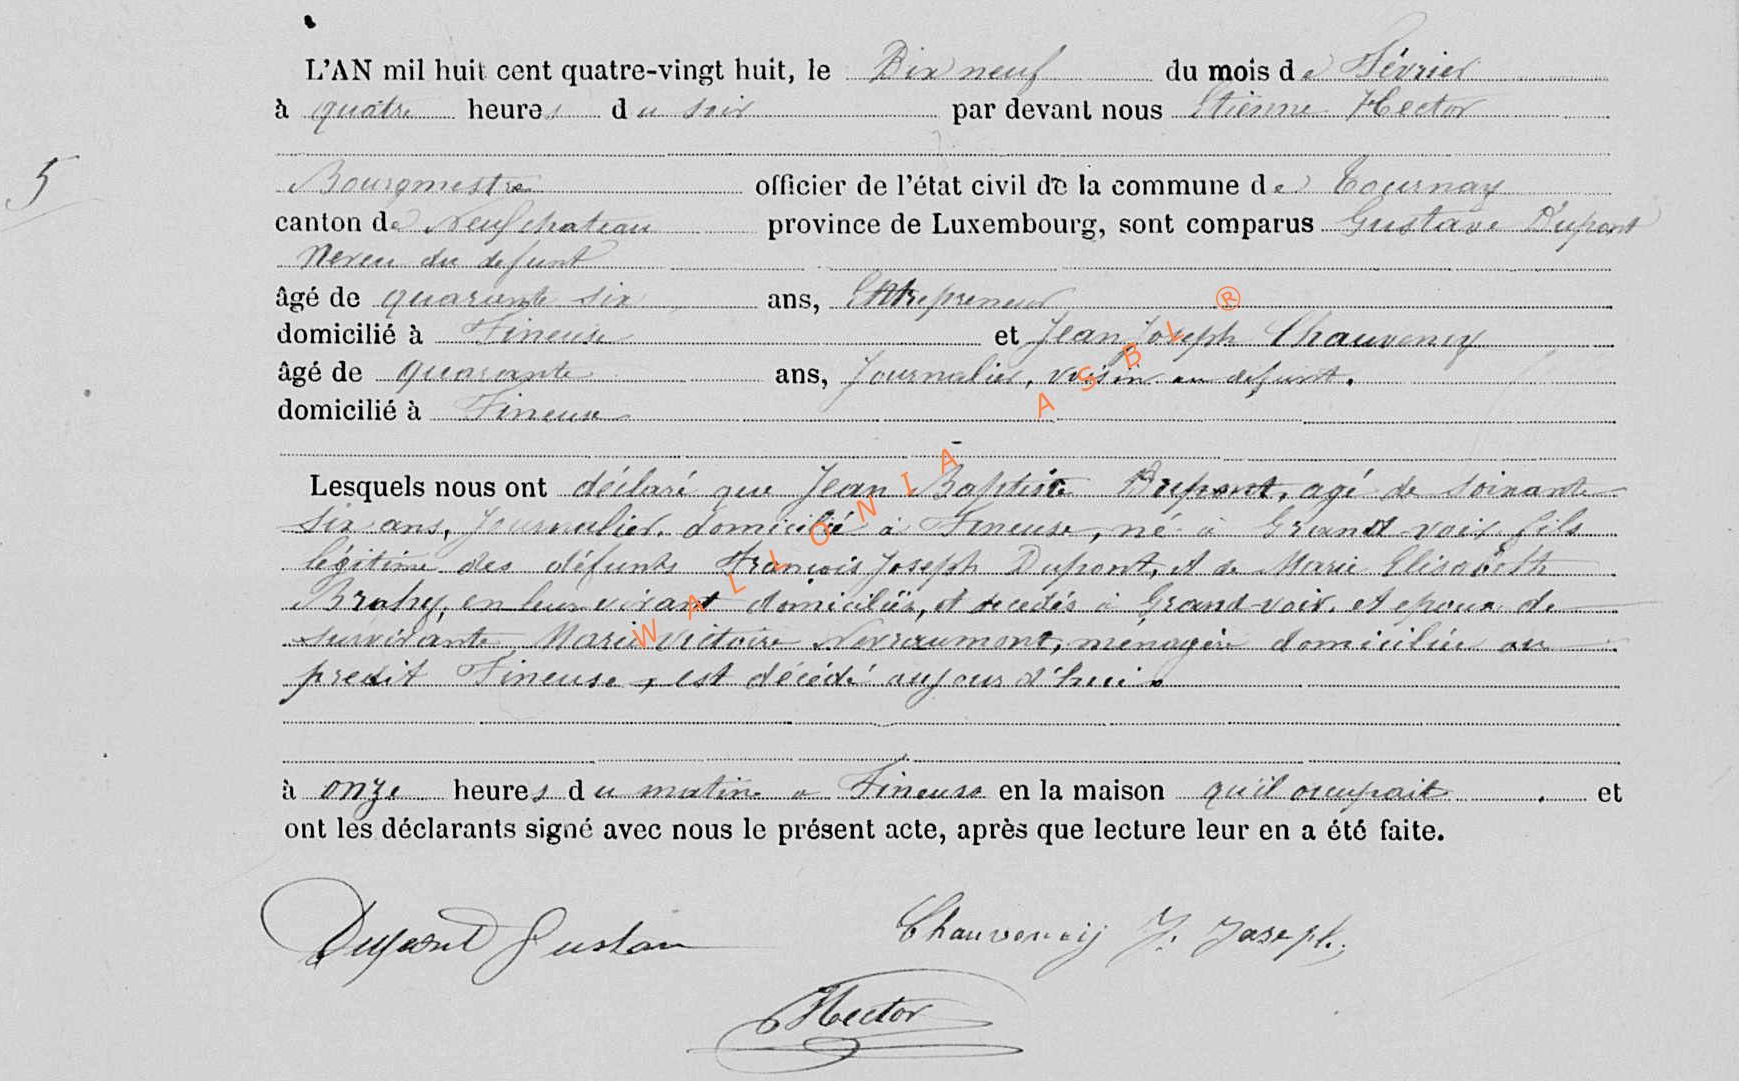 L'AN mil huit cent quatre-vingt huit, le Dix neuf du mois de Février
à quatre heures du soir par devant nous Etienne Hector
5
Bourgmestre officier de l'état civil de la commune de Tournay
canton de Neufchateau province de Luxembourg, sont comparus Gustave Dupont
Neveu du defunt
âgé de quarante six ans, Entrepreneur
domicilié à Fineuse et Jean Joseph Chauvency
âgé de quarante ans, Journalier, voisin au defunt.
domicilié à Fineuse
Lesquels nous ont déclaré que Jean Baptiste Dupont, agé de soixante
six ans, Journalier, domicilié à Fineuse, né à Grand-voir, fils
légitime des défunts François Joseph Dupont, et de Marie Elisabeth
Brahy, en leur vivant domiciliés, et decedés à Grand-voir, et epoux de
survivante Marie Victoire Nevraumont, ménagère domiciliée au
predit Fineuse, est décédé aujourd'hui
à onze heures du matin à Fineuse en la maison qu'il occupait. et
ont les déclarants signé avec nous le présent acte, après que lecture leur en a été faite.
Dupont Gustave Chauvency J. Joseph.
Hector
WALLONIA ASBL ®